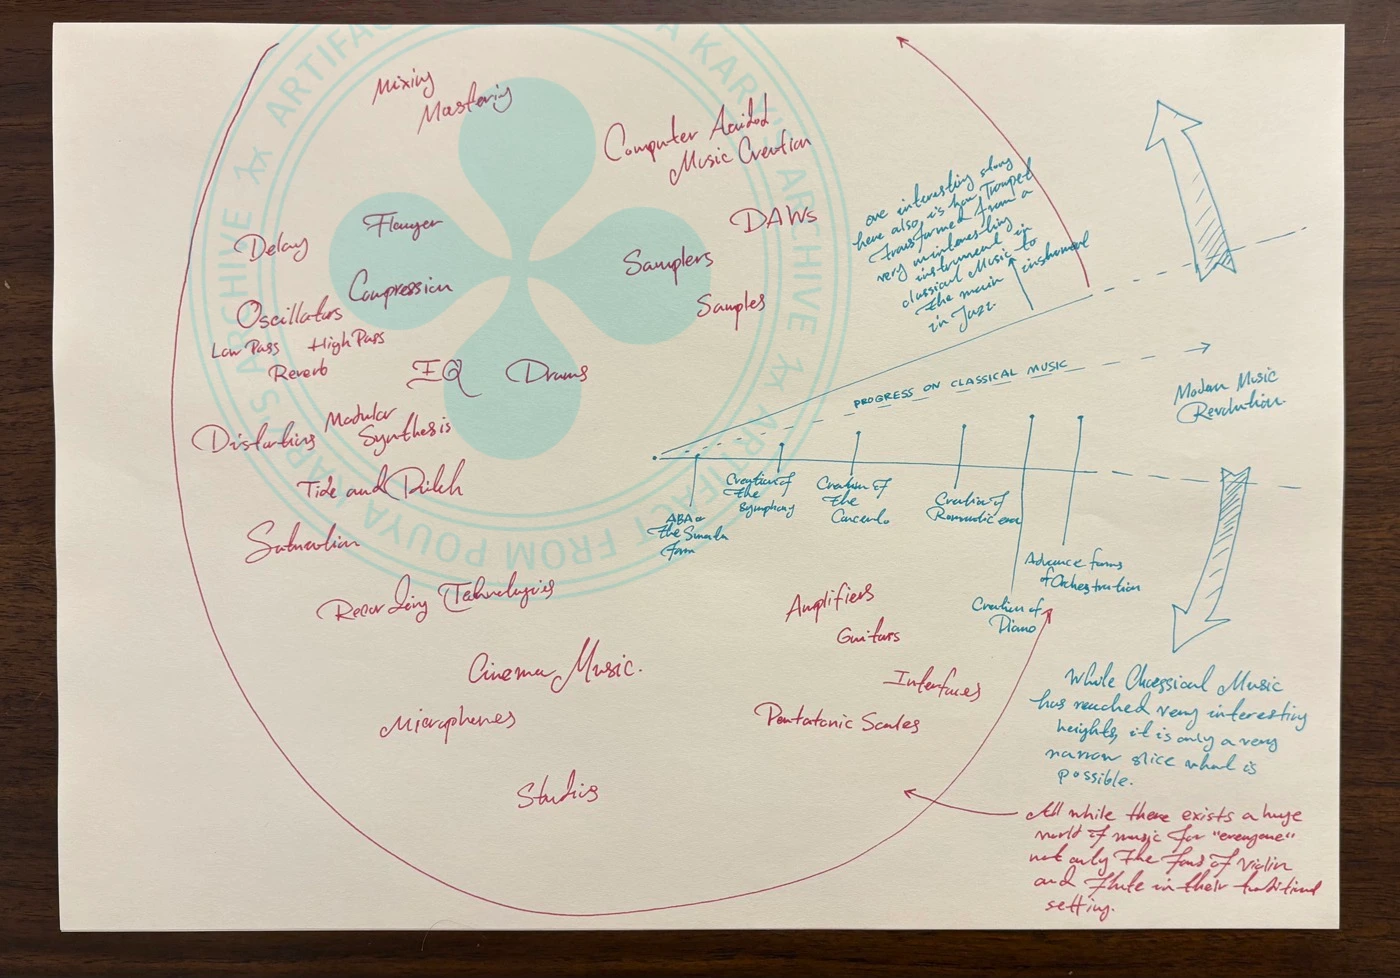 Mixing
Mastering
Computer Aaided
Music Creation
Delay
Flanger
DAWs
Samplers
Compression
Samples
Oscillators
Low Pass High Pass
Reverb
EQ
Drums
Distortions
Modular
Synthesis
and
Saturation
Recording Technologies
Cinema Music.
Microphones
Studios
Amplifiers
Guitars
Interfaces
Pentatonic Scales
one interesting story
here also, is how Trumpet
transformed from a
very uninteresting
instrument in
classical Music to
the main instrument
in Jazz.
PROGRESS ON CLASSICAL MUSIC
Modern Music
Revolution.
ABA or
the
form
Creation of
the
Symphony
Creation of
the
Concerto
Creation of
Romantic era
Creation of
Piano
Advance forms
of Orchestration
While Classical Music
has reached very interesting
heights, it is only a very
narrow slice what is
possible.
All while there exists a huge
world of music for "everyone"
not only the fans of violin
and flute in their traditional
setting.
ARTIFACT FROM POUYA KARIMI'S ARCHIVE